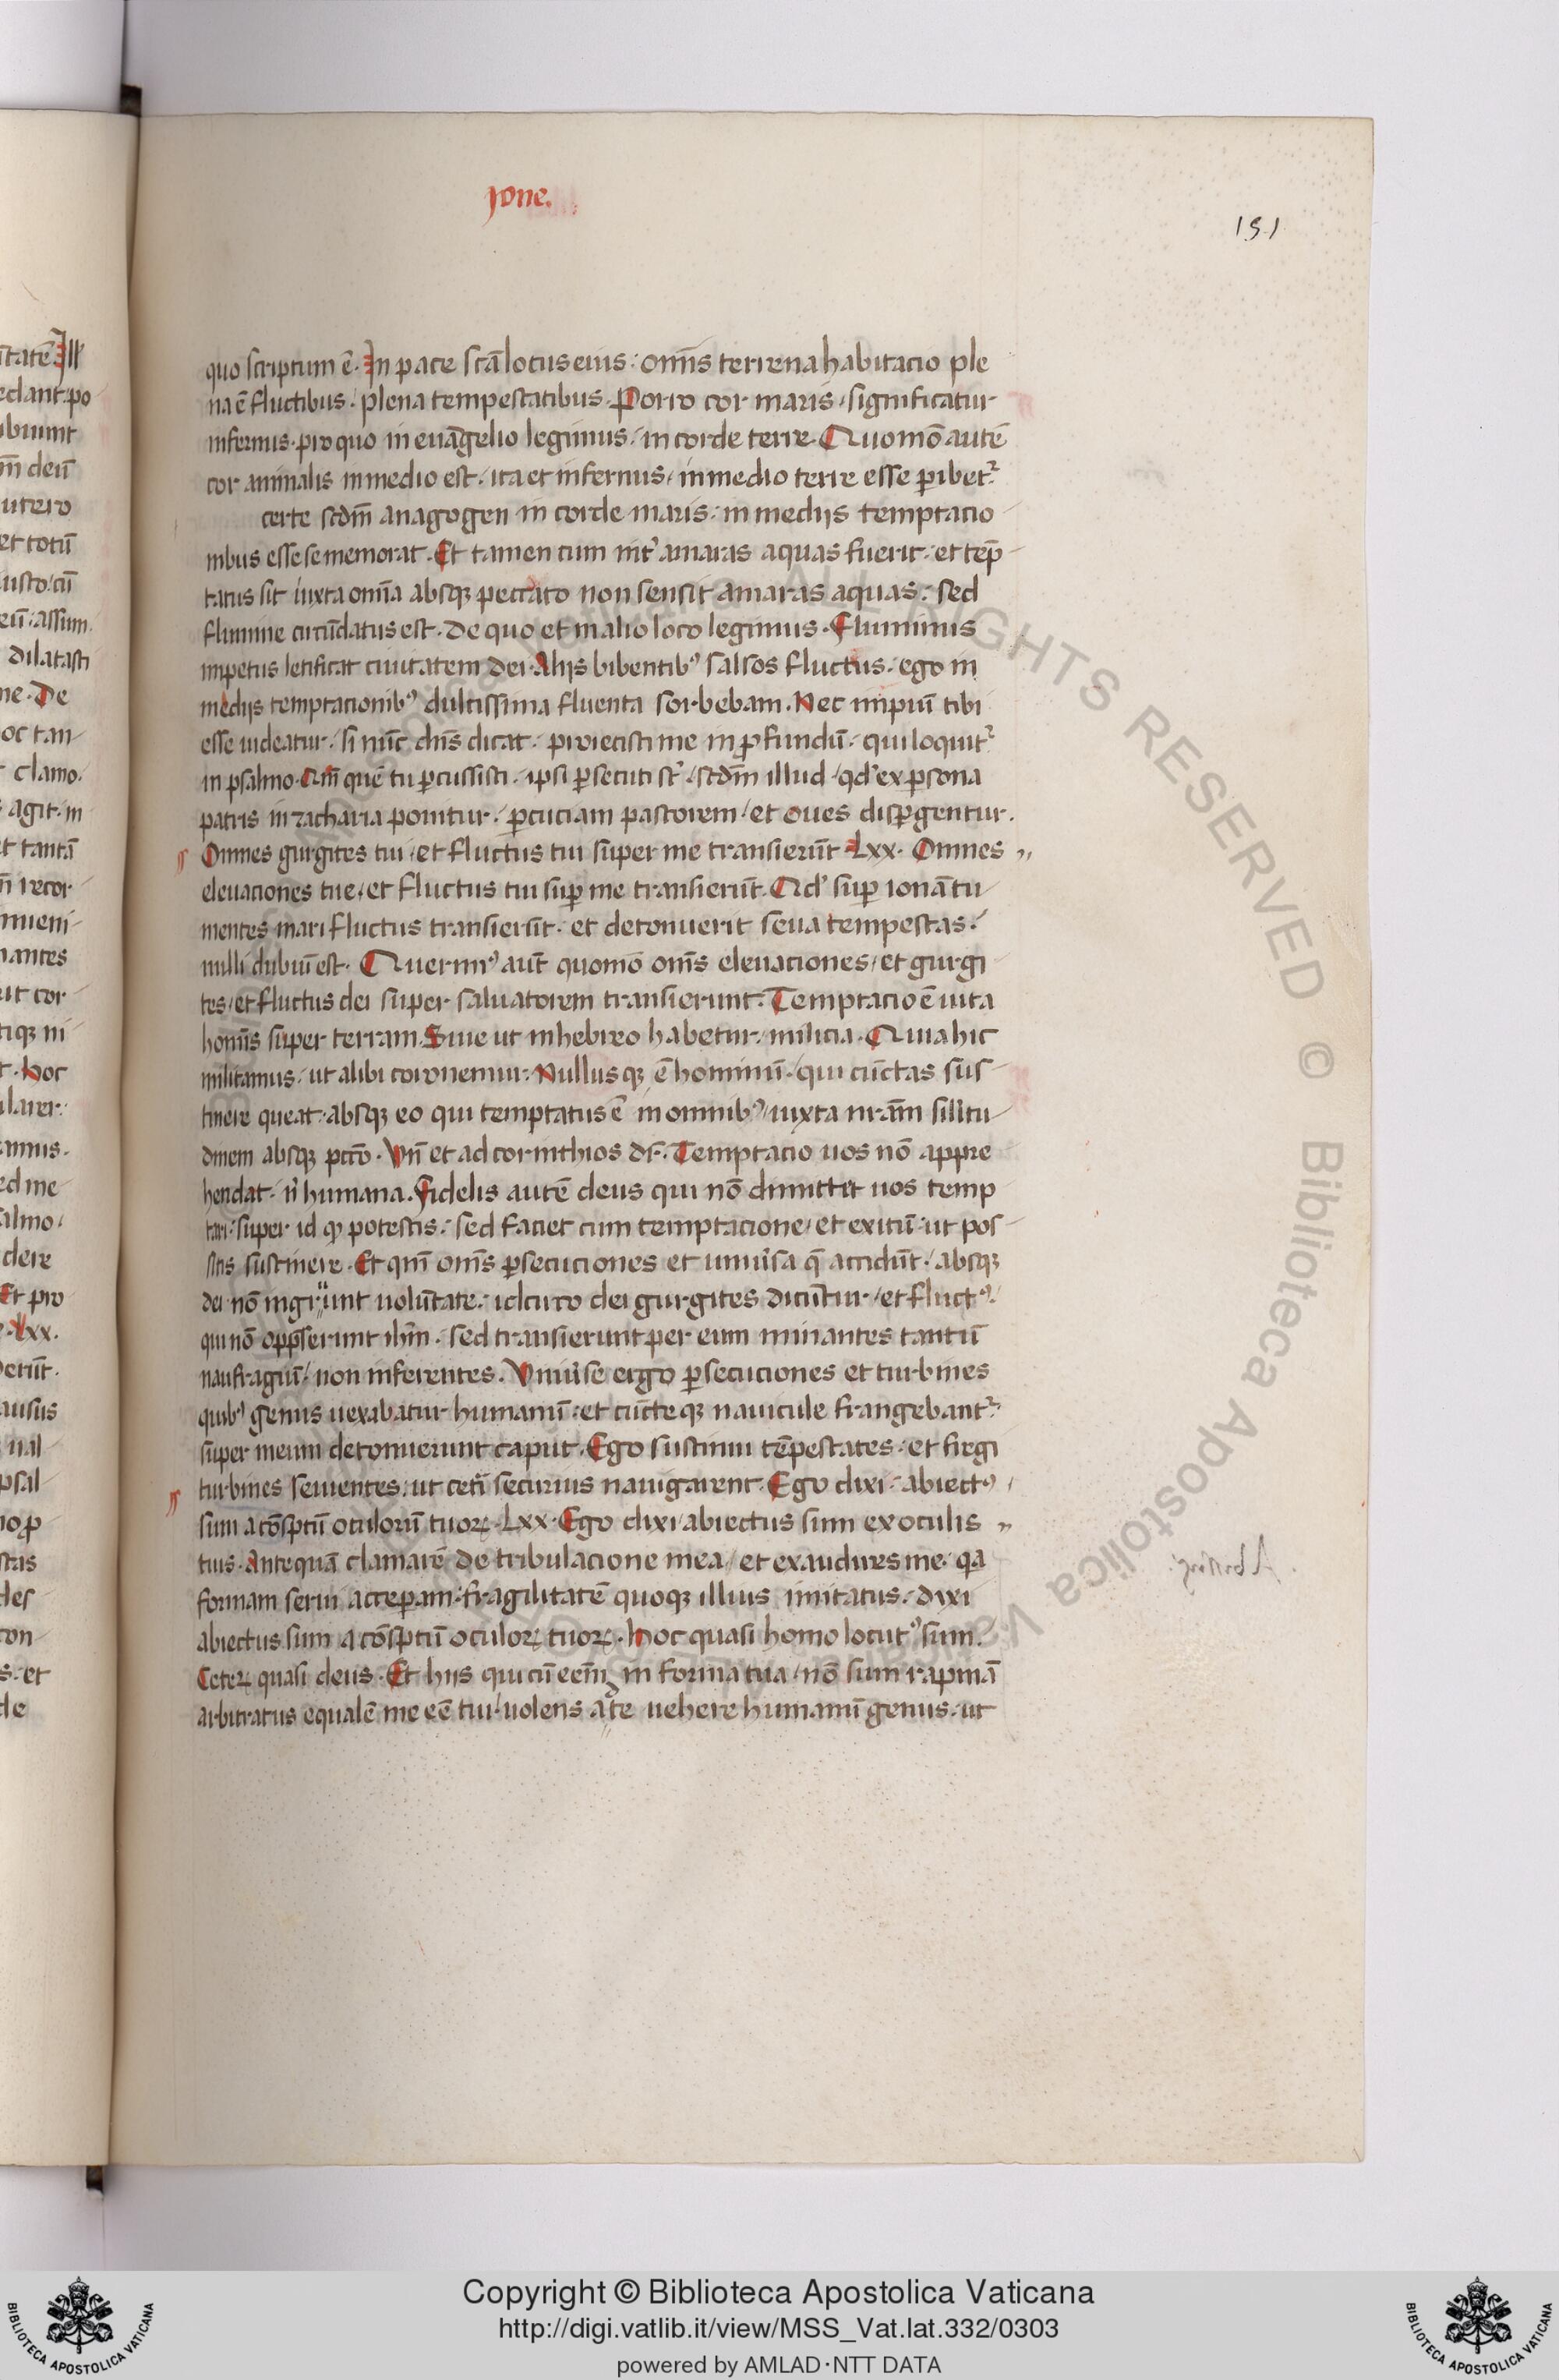 Jone.
151
quo scriptum ē. In pace scā locus eius: om̄is terrena habitacio ple
na ē fluctibus. plena tempestatibus. Porro cor maris, significatur
infernus. pro quo in euāgelio legimus, in corde terre. Quomō autē
cor animalis in medio est, ita et infernus, in medio terre esse ꝑibet᷑
certe scdm̄ anagogen in corde maris: in medijs temptacio
nibus esse se memorat. Et tamen cum int᷑ amaras aquas fuerit, et tēp
tatus sit iuxta om̄ia absqꝫ peccato non sensit amaras aquas: sed
flumine circūdatus est. De quo et in alio loco legimus. Fluminis
impetus letificat ciuitatem dei. Alijs bibentibꝰ salsos fluctus, ego in
medijs temptacionibꝰ dulcissima fluenta sorbebam. Nec impiū tibi
esse uideatur, si nūc dn̄s dicat, proiecisti me in ꝓfundū, qui loquit᷑
in psalmo. Qm̄ quē tu ꝑcussisti, ipsi ꝑsecuti st᷑, scdm̄ illud, qd᷑ ex ꝑsona
patris in zacharia ponitur, ꝑcuciam pastorem, et oues disꝑgentur.
Omnes gurgites tui, et fluctus tui super me transierūt. Lxx. Omnes
eleuaciones tue, et fluctus tui suꝑ me transierūt. Qd᷑ suꝑ ionā tu
mentes mari fluctus transiersit, et detonuerit seua tempestas,
nulli dubiū est. Querimꝰ aut̄ quomō om̄s eleuaciones, et gurgi
tes, et fluctus dei super saluatorem transierunt. Temptacio ē uita
homīs super terram. Siue ut in hebreo habetur, milicia. Quia hic
militamus, ut alibi coronemur. Nullusqꝫ ē hominū, qui cūctas sus
tinere queat, absqꝫ eo qui temptatus ē in omnibꝰ, iuxta nr̄am silitu
dinem absqꝫ pctō. Vn̄ et ad corinthios dr̄. Temptacio uos nō appre
hendat, n᷑ humana. Fidelis autē deus qui nō dimittit uos temp
tari, super id qꝫ potestis, sed faciet cum temptacione, et exitū, ut pos
sitis sustinere. Et qm̄ om̄s ꝑsecuciones et uniu᷑sa q̄ accidūt, absqꝫ
dei nō ingruunt uolūtate, idcirco dei gurgites dicūtur, et fluctꝰ,
qui nō oppꝛserunt ih̄m, sed transierunt per eum minantes tantū
naufragiū, non inferentes. Vniu᷑se ergo ꝑsecuciones et turbines
quibꝰ genus uexabatur humanū, et cūcteqꝫ nauicule frangebant᷑
super meum detonuerunt caput. Ego sustinui tēpestates, et fregi
turbines seuientes, ut cet᷑i securius nauigarent. Ego dixi, abiectꝰ
sum a cōsꝑtū oculorū tuoꝝ. Lxx. Ego dixi, abiectus sum ex oculis
tuis. Antequā clamarē de tribulacione mea, et exaudires me, qa
formam serui acceꝑam, fragilitatē quoqꝫ illius imitatus, dixi
abiectus sum a cōsꝑtū oculoꝝ tuoꝝ. Hoc quasi homo locutꝰ sum.
Ceteꝝ quasi deus. Et hijs qui cū eēm in forma tua, nō sum rapinā
arbitratus equalē me eē tui, uolens a te uehere humanū genus, ut
Copyright © Biblioteca Apostolica Vaticana
http://digi.vatlib.it/view/MSS_Vat.lat.332/0303
powered by AMLAD·NTT DATA